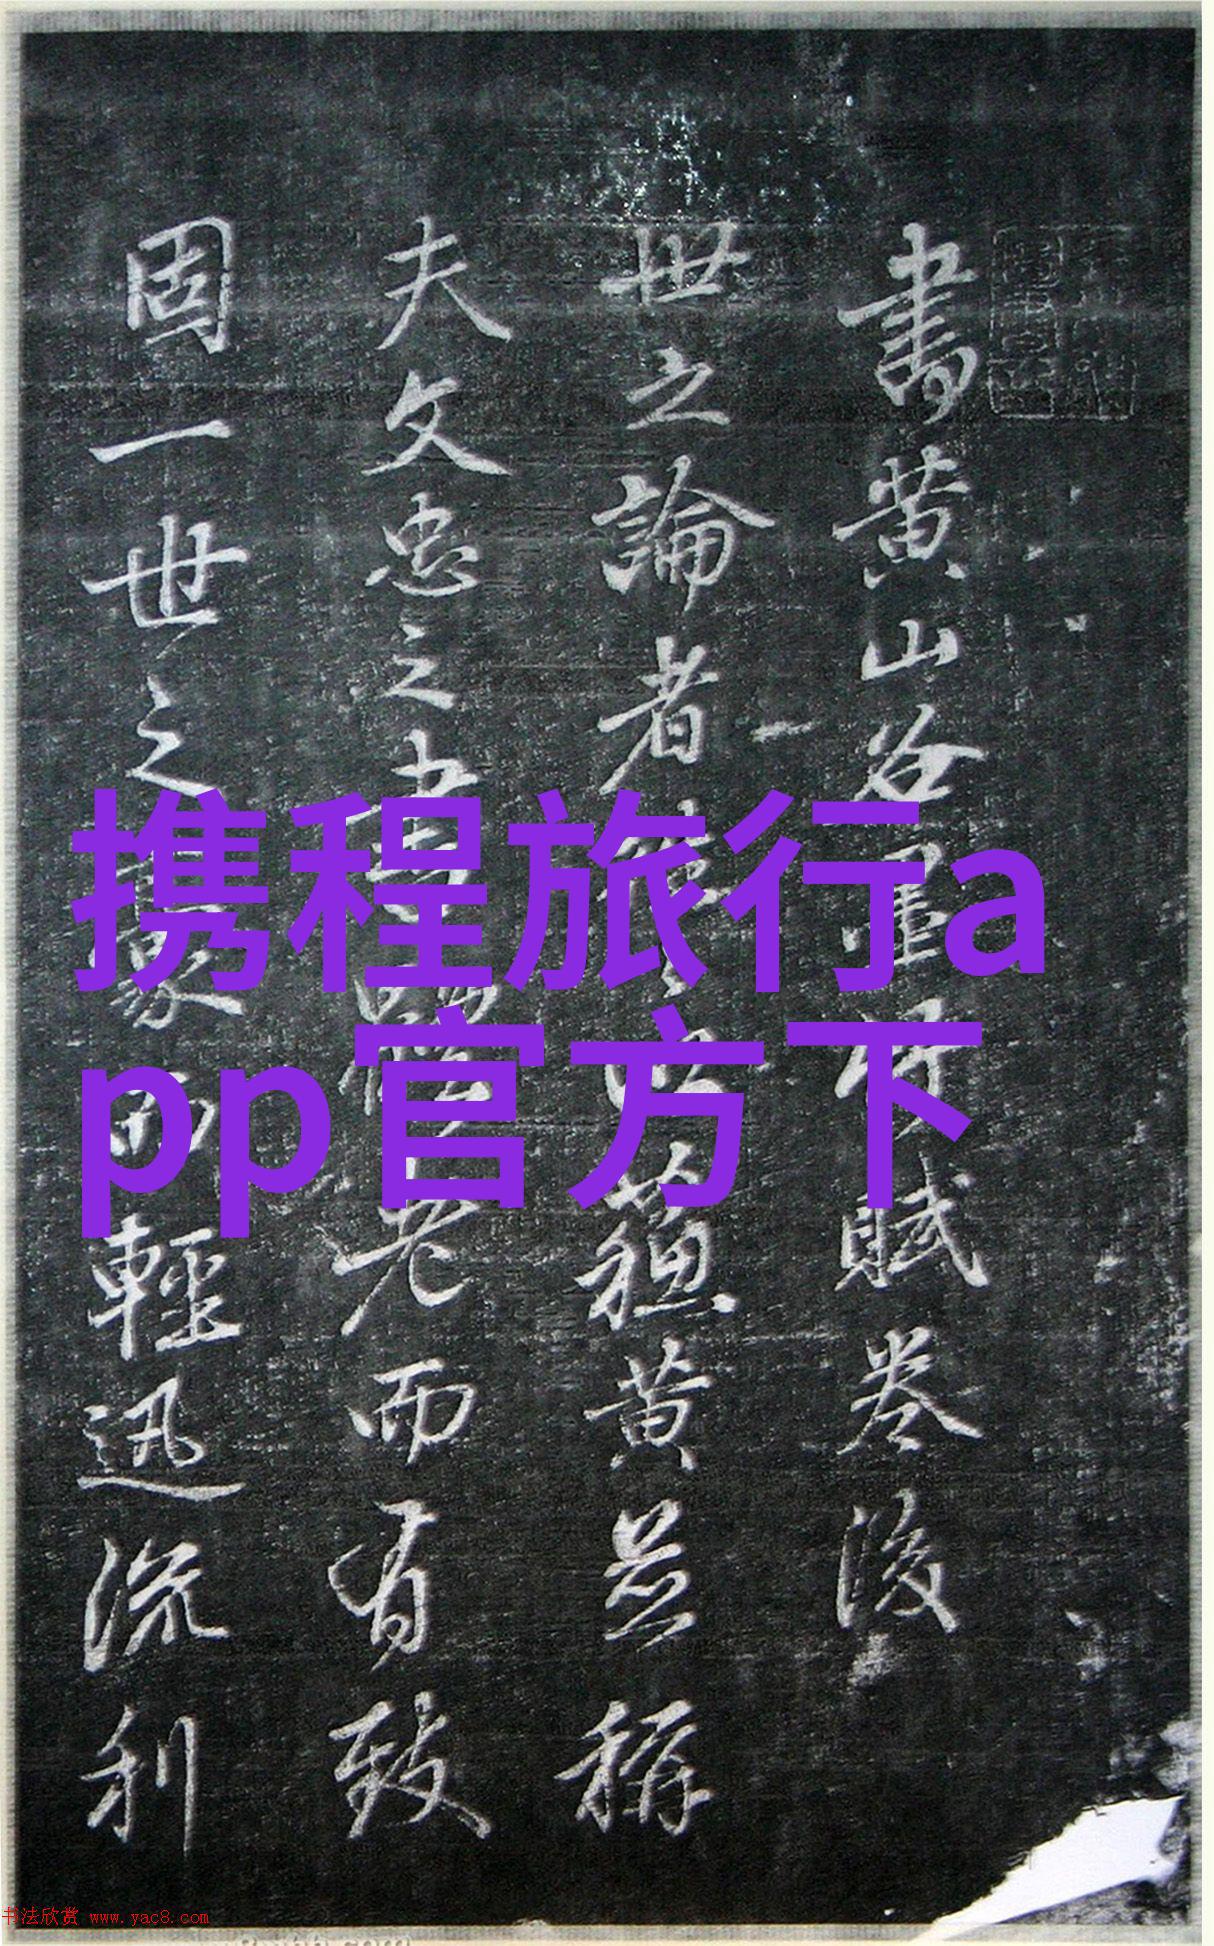 書黄山谷墨竹賦卷後
世之論者蘓黄並稱
夫文忠之書老而有致
固一世之豪而輕迅流利
携程旅行a
pp官方下
书法欣赏 www.yac8.com